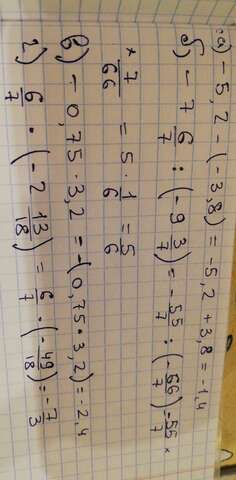 а) -5,2-(-3,8)=-5,2+3,8=-1,4
б) -7 6/7 : (-9 3/7) = -55/7 : (-66/7) -55/7 ×
× 7/66 = 5·1/6 = 5/6
в) -0,75·3,2=-(0,75·3,2)=-2,4
г) 6/7 · (-2 13/18) = 6/7 · (-49/18) = -7/3